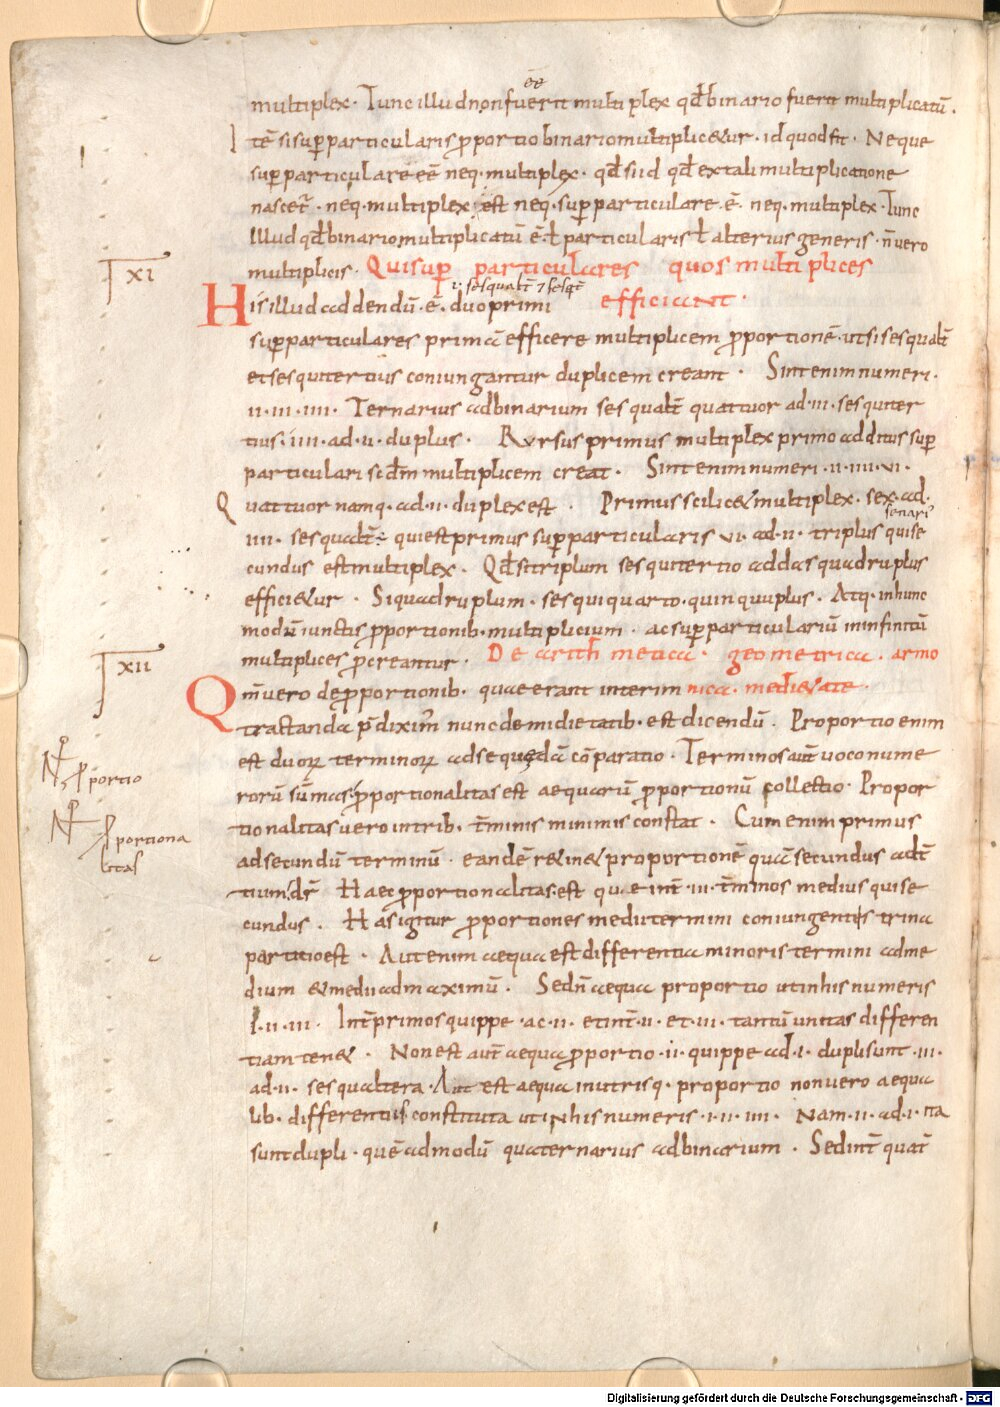 multiplex. Tunc illud non fuerit multiplex qđ binario fuerit multiplicatū.
Itē si suꝑparticularis ꝓportio binario multiplic&ur. id quod fit. Neque
suꝑparticulare eē neq. multiplex. qđ si id qđ ex tali multiplicatione
nascet̄. neq. multiplex est neq. suꝑparticulare.ē. neq. multiplex. Tunc
Illud qđ binario multiplicatū ē. ł particularis ł alterius generis. n̄ vero
multiplicis. Qui suꝑ particulares quos multiplices
XI
efficiant.
His illud addendū.ē. duo primi
suꝑparticulares primā efficere multiplicem ꝓportionē. ut si sesqualt̄
et sesquitertius coniungantur duplicem creant. Sint enim numeri.
.ii.iii.iiii. Ternarius ad binarium sesqualt̄ quattuor ad.iii. sesquiter
tius. iiii.ad.ii. duplus. Rursus primus multiplex primo additus suꝑ
particulari scdm̄ multiplicem creat. Sint enim numeri.ii.iiii.vi.
Quattuor namq. ad.ii. duplex est. Primus scilic& multiplex. sex.ad.
senari
iiii. sesqualt̄. qui est primus suꝑparticularis vi. ad.ii. triplus qui se
cundus est multiplex. Qđ si triplum sesquitertio addas quadruplus
effici&ur. Si quadruplum. sesquiquarto. quinquuplus. Atq. in hunc
modū iunctis ꝓportionib. multiplicium. ac suꝑparticulariū in infinitū
multiplices ꝓcreantur. De arithmetica. geometrica. armo
XII
nica. medi&ate.
Qm̄ vero de ꝓportionib. quae erant interim
tractanda p̄diximˀ nunc de midietatib. est dicendū. Proportio enim
est duoꝝ terminoꝝ ad se quēdā cōparatio. Terminos aut̄ voco nume
rorū sūmas. ꝓportionalitas est aequarū ꝓportionū collectio. Propor
ꝓportio
tionalitas vero in trib. t̄minis minimis constat. Cum enim primus
ꝓportiona
litas
ad secundū terminū. eandē r&in& proportionē quā secundus ad t̄
tium. dr̄ Haec ꝓportionalitas. est quae int̄.iii. t̄minos medius qui se
cundus. Has igitur ꝓportiones medii termini coniungentis trina
partitio est. Aut enim aequa est differentia minoris termini ad me
dium & medii ad maximū. Sed n̄ aequa proportio ut in his numeris
I.ii.iii. Int̄ primos quippe.ac.ii. et int̄.ii. et.iii. tantū unitas differen
tiam ten&. Non est aut̄ aequa ꝓportio.ii. quippe ad.i. dupli sunt.iii.
ad.ii. sesqualtera. Aut est aequa in utrisq. proportio non vero aequa
lib. differentiis constituta ut in his numeris.i.ii.iiii. Nam.ii. ad.i. ita
sunt dupli. quēadmodū quaternarius ad binarium. Sed int̄ quat̄
Digitalisierung gefördert durch die Deutsche Forschungsgemeinschaft - DFG